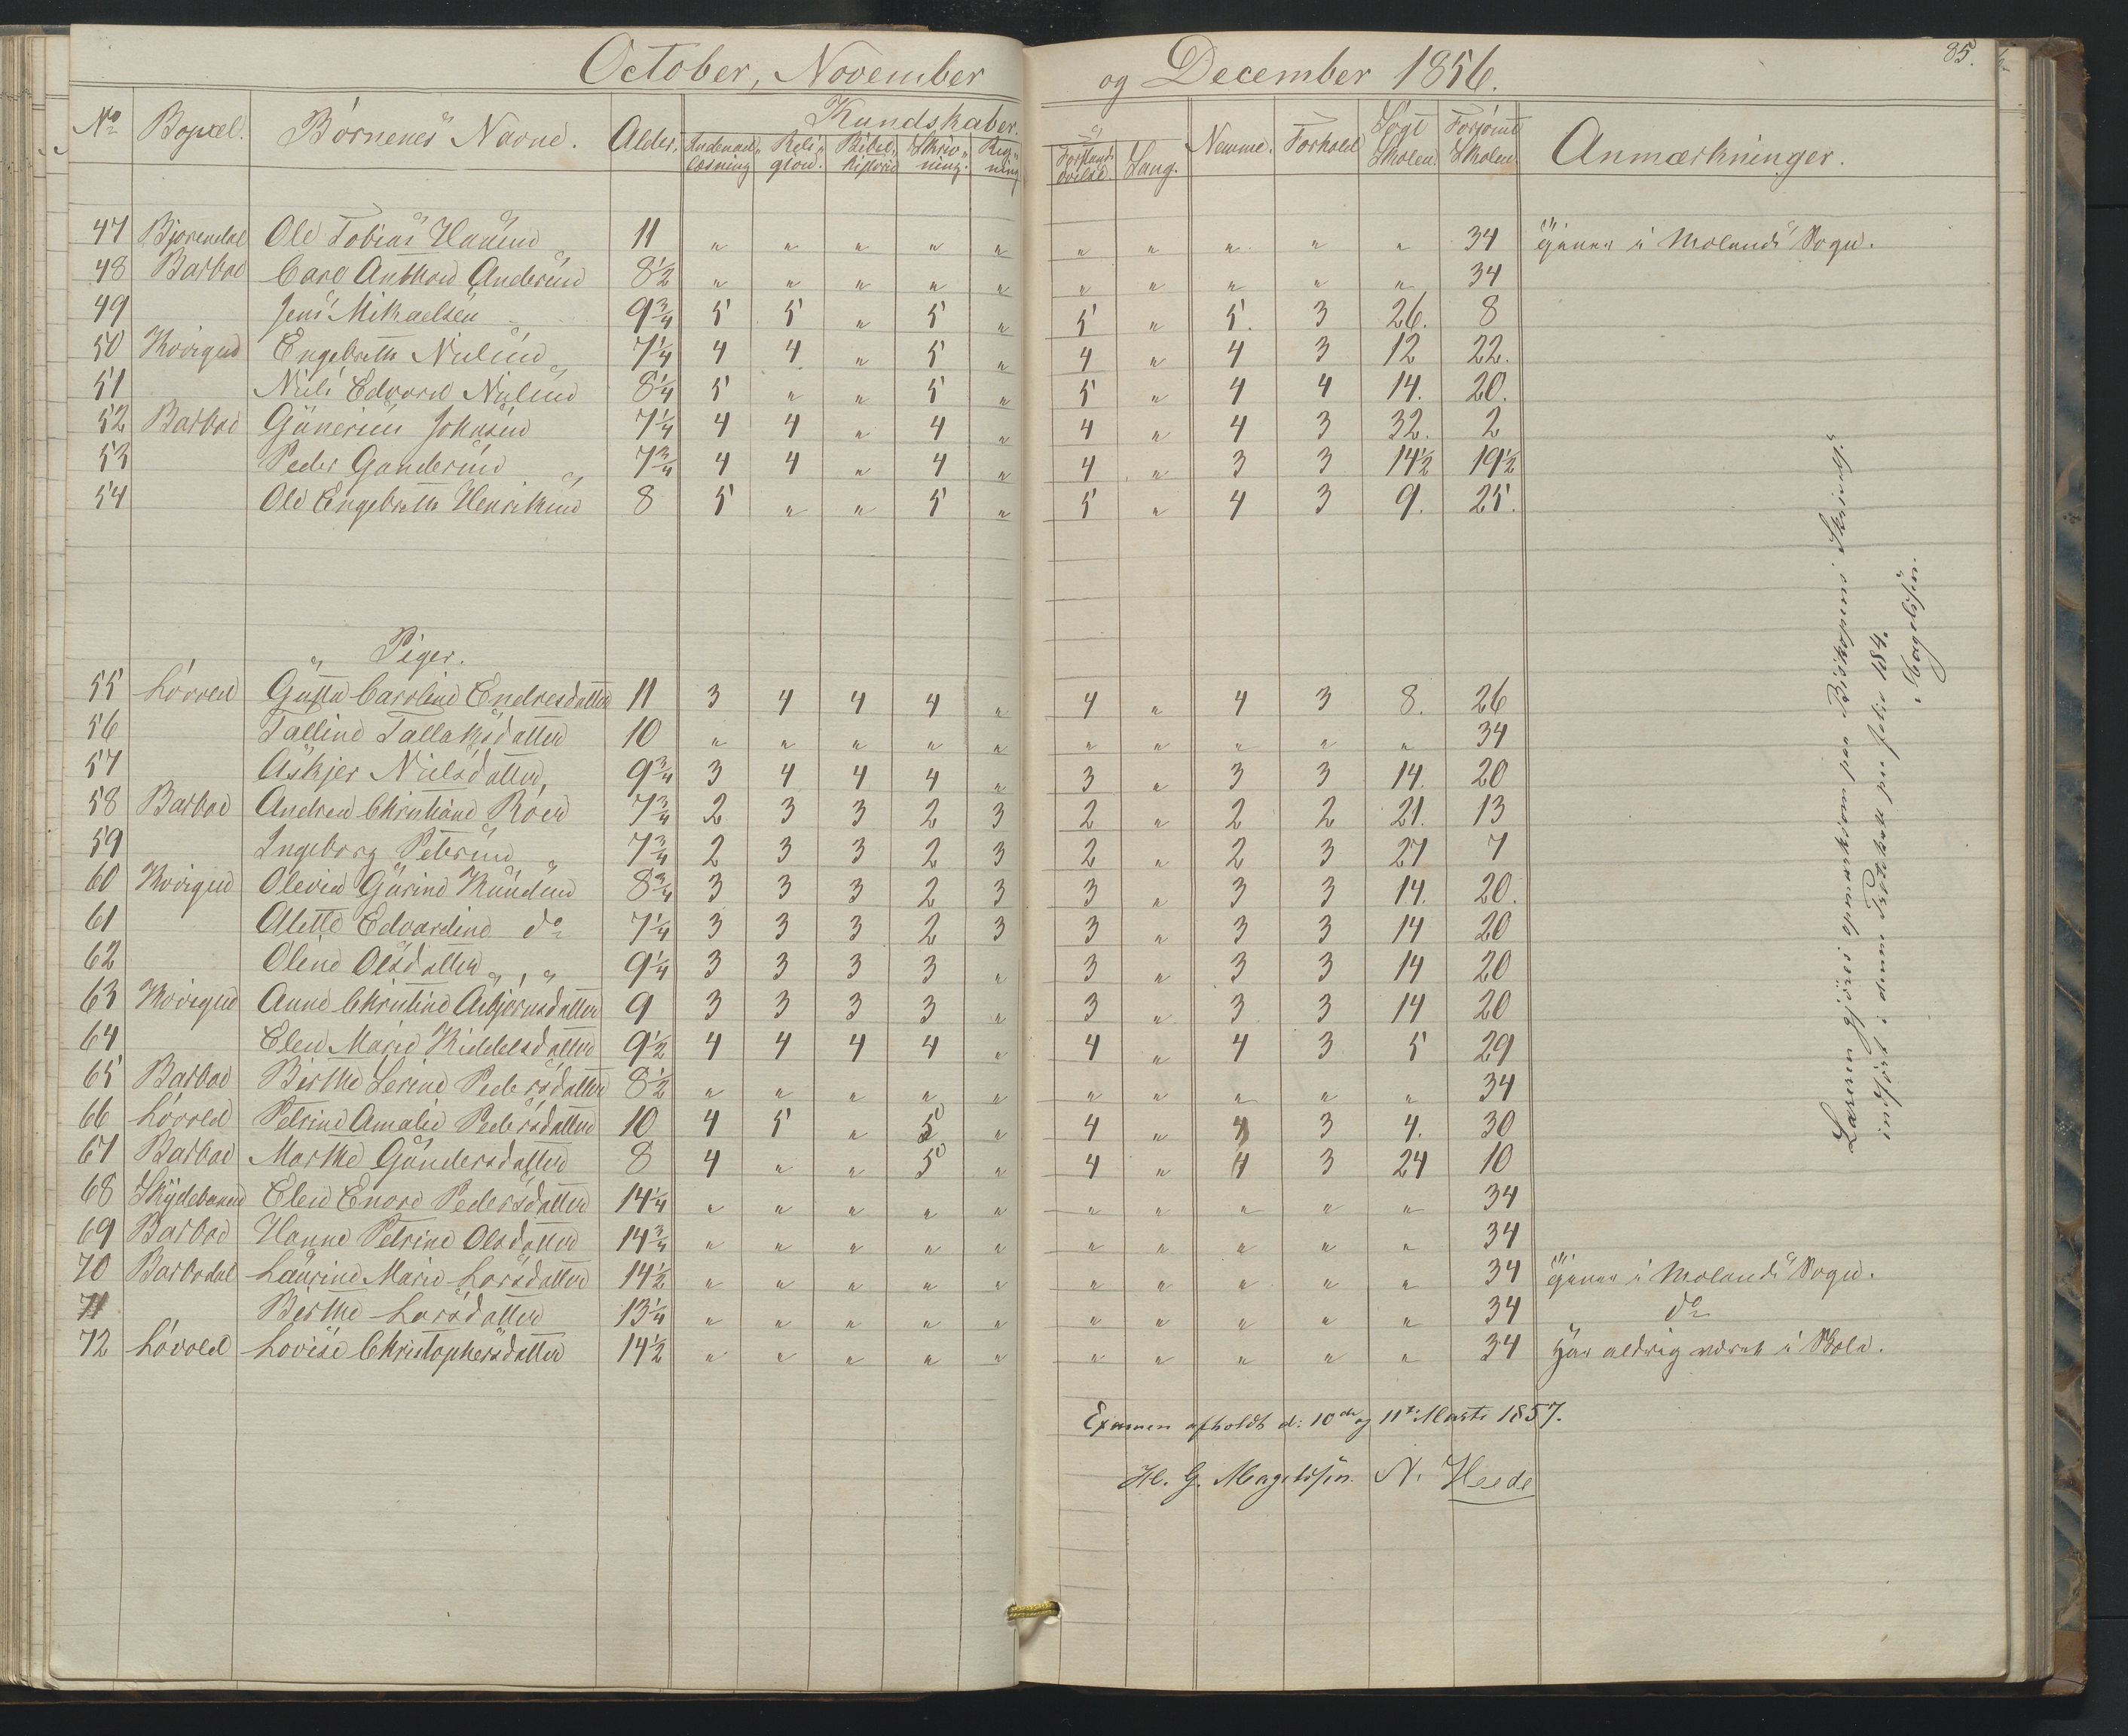 October, November og December 1856.
85.
No Bopæl. Børnenes Navne. Alder. Kundskaber. Nemme. Forhold Søgt Skolen. Forsømt Skolen. Anmærkninger.
Indenadlæsning Religion. Bibelhistorie Skrivning. Regning Forstandsøvelse Sang.
47 Bjorendal Ole Tobias Hansen 11 " " " " " " " " " " 34 Gaaer i Molands Sogn.
48 Barboe Carl Anthon Andersen 8 1/2 " " " " " " " " " " 34
49 Jens Mikaelsen 9 3/4 5 5 " 5 " 5 " 5. 3 26. 8
50 Kvigud Engebreth Nielsen 7 1/4 4 4 " 5 " 4 " 4 3 12 22.
51 Niels Edvard Nielsen 8 1/4 5 " " 5 " 5 " 4 4 14. 20.
52 Barboe Gunerius Johnsen 7 1/4 4 4 " 4 " 4 " 4 3 32. 2
53 Peder Gundersen 7 3/4 4 4 " 4 " 4 " 3 3 14 1/2 19 1/2
54 Ole Engebreth Henriksen 8 5 " " 5 " 5 " 4 3 9. 25.
Piger.
55 Løvold Gusta Caroline Endresdatter 11 3 4 4 4 " 4 " 4 3 8. 26
56 Talline Tallaksdatter 10 " " " " " " " " " " 34
57 Askjer Nielsdatter, 9 3/4 3 4 4 4 " 3 " 3 3 14. 20
58 Barboe Andrea Christiane Roen 7 3/4 2 3 3 2 3 2 " 2 2 21. 13
59 Ingeborg Petersen 7 3/4 2 3 3 2 3 2 " 2 3 27 7
60 Kvigud Olevia Gurine Knudsen 8 3/4 3 3 3 2 3 3 " 3 3 14. 20.
61 Alette Edvardine do 7 1/4 3 3 3 2 3 3 " 3 3 14 20
62 Oline Olsdatter " " 9 1/4 3 3 3 3 " 3 " 3 3 14 20
63 Kvigud Anne Christine Asbjørnsdatter 9 3 3 3 3 " 3 " 3 3 14 20
64 Elen Marie Kiddelsdatter 9 1/2 4 4 4 4 " 4 " 4 3 5 29
65 Barboe Birthe Serine Pedersdatter 8 1/2 " " " " " " " " " " 34
66 Løvold Petrine Amalie Pedersdatter 10 4 5 " 5 " 4 " 4 3 4. 30
67 Barboe Marthe Gundersdatter 8 4 " " 5 " 4 " 4 3 24 10
68 Elen Enore Pedersdatter 14 1/4 " " " " " " " " " " 34
69 Barboe Hanne Petrine Olsdatter 14 3/4 " " " " " " " " " " 34
70 Barbodal Laurine Marie Larsdatter 14 1/2 " " " " " " " " " " 34 Gaaer i Molands Sogn.
71 Birthe Larsdatter 13 1/4 " " " " " " " " " " 34 do
72 Løvold Lovise Christophersdatter 14 1/2 " " " " " " " " " " 34 Har aldrig været i Skole.
Examen afholdt d: 10de og 11te Marts 1857.
H. G. Magelssen. N. Heede
Læreren gjøres opmærksom paa Biskopens Skrivelse
indført i denne Protokoll paa folio 184.
Magelssen.